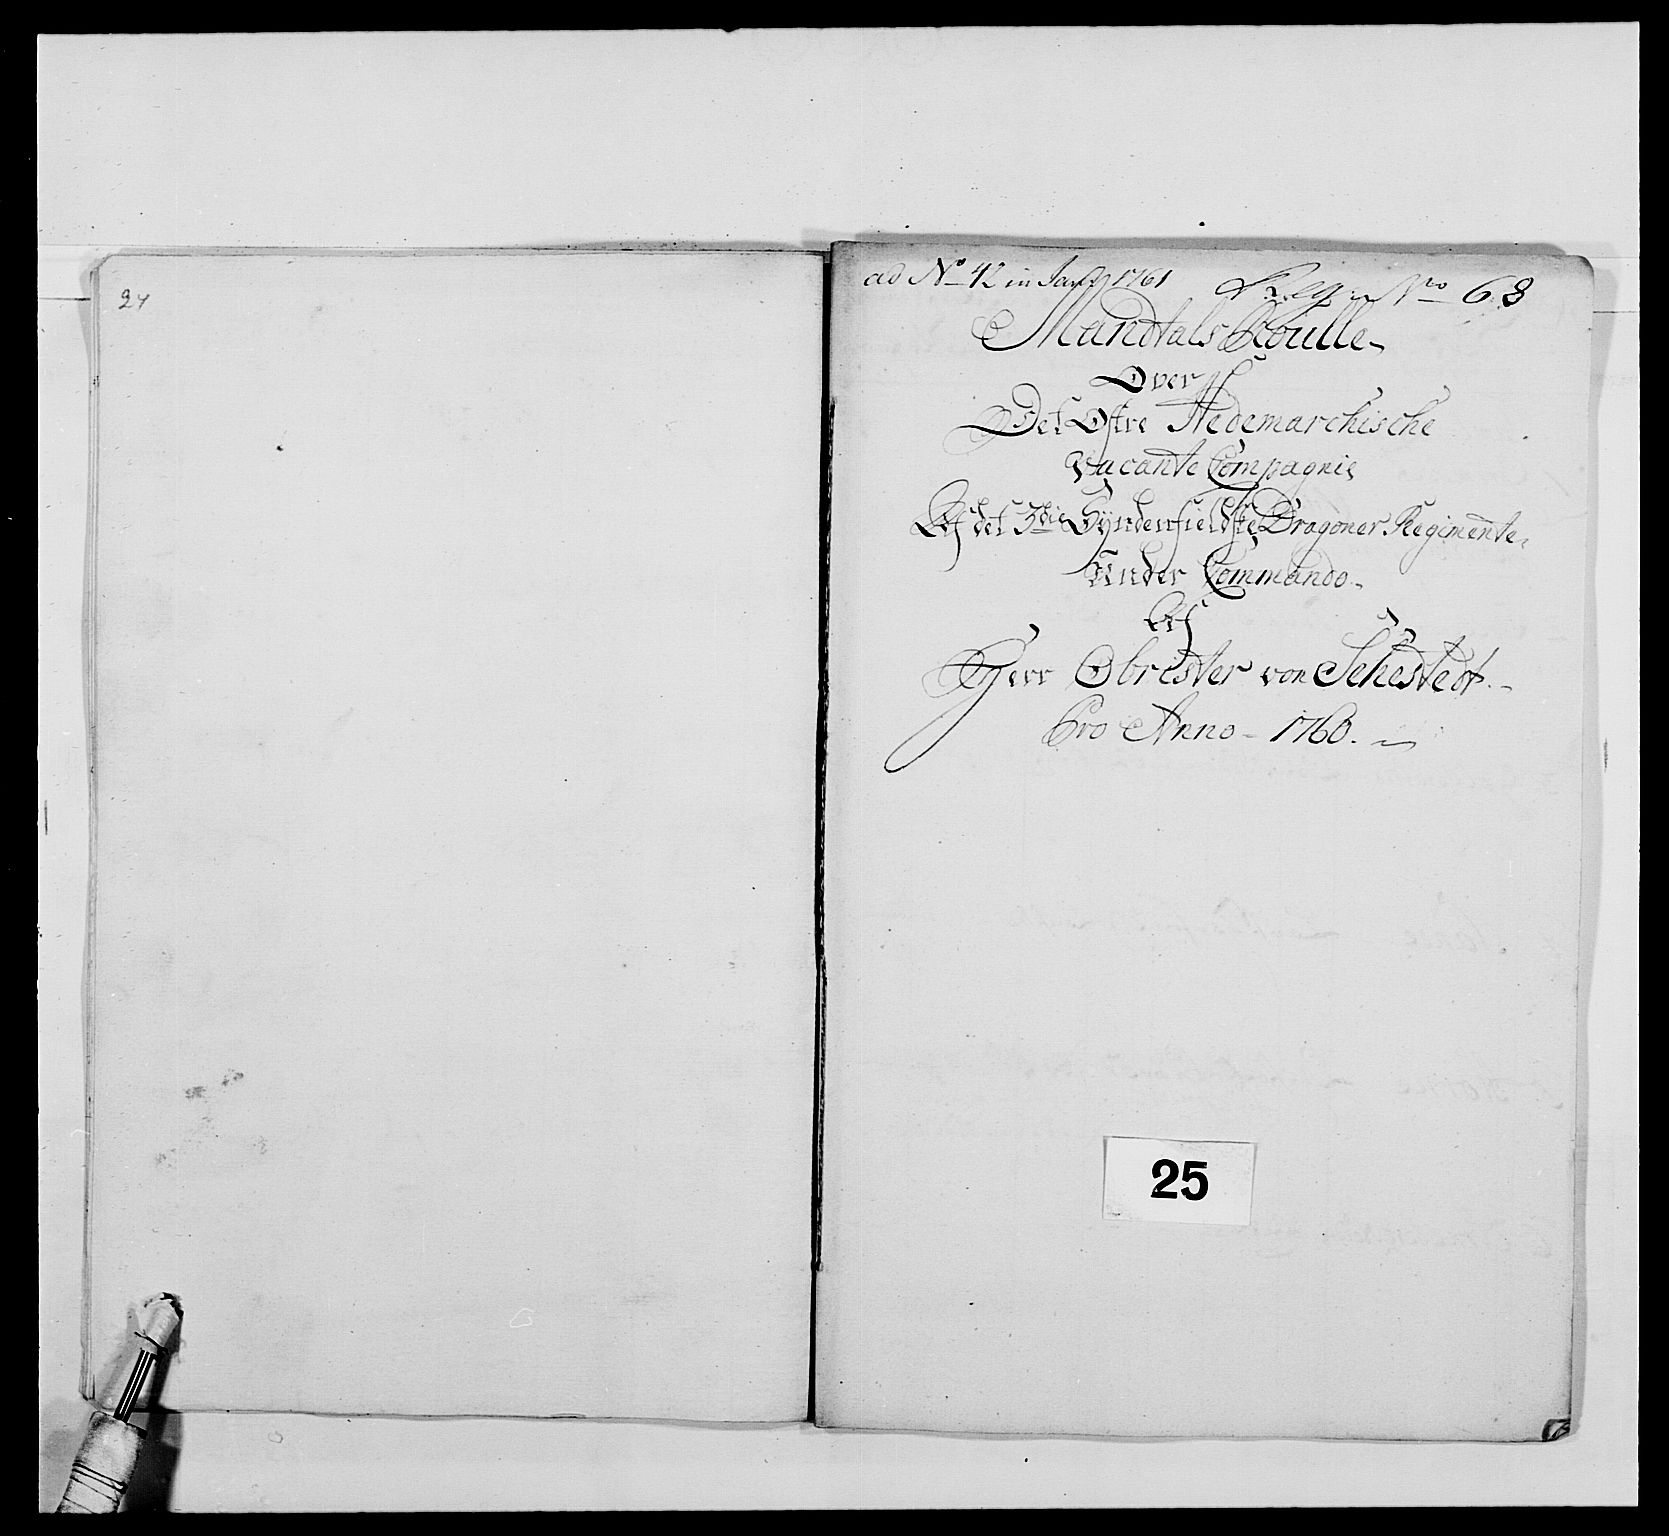 24
ad No 42 in Janr 1761 Reg: Nro 68
Mandtals Roulle
Over
Det Østre Hedemarchische
Vacante Compagnie
Af det 3die Syndenfieldske Dragoner Regimente
Under Commando
Af
Herr Obrister von Sehestedt
Pro Anno 1760.
25